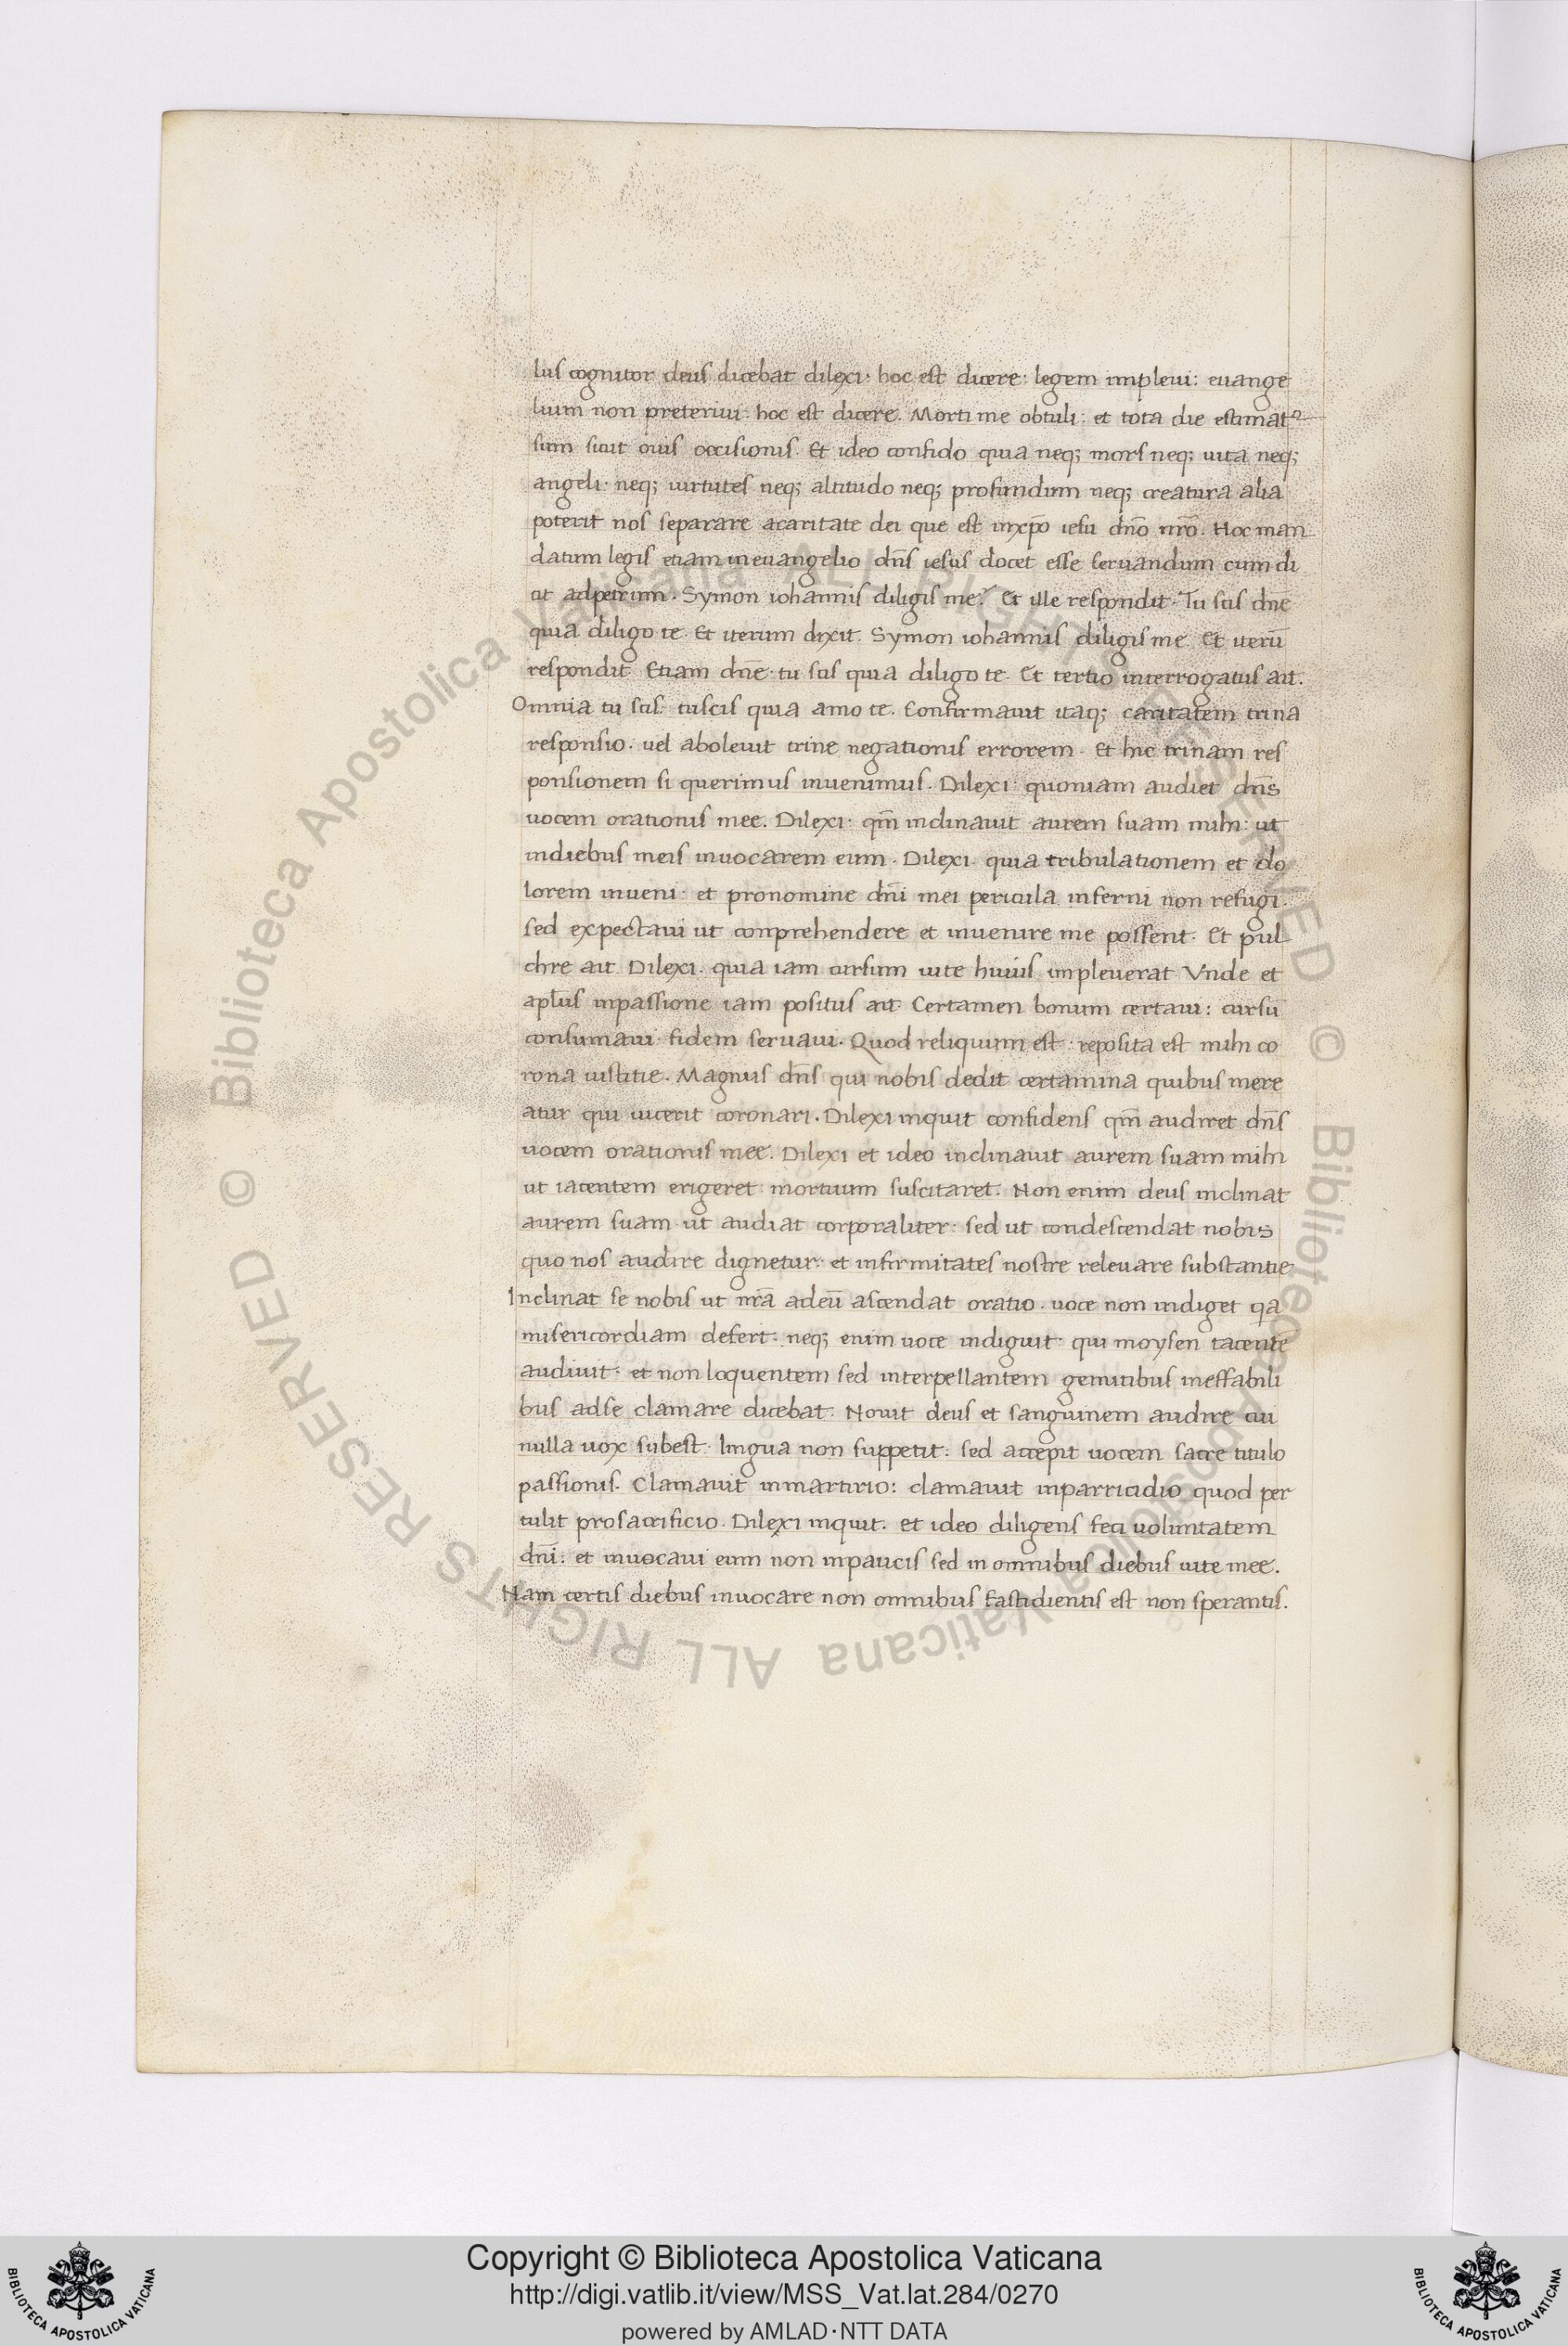 lus cognitor deus dicebat dilexi· hoc est dicere: legem impleui: euange
lium non preteriui: hoc est dicere. Morti me obtuli: et tota die estimatꝰ
sum sicut ouis occisionis. Et ideo confido quia neq; mors neq; uita neq;
angeli· neq; uirtutes neq; altitudo neq; profundum neq; creatura alia
poterit nos separare acaritate dei que est inxpō iesu dn̄o nr̄o. Hoc man
datum legis etiam ineuangelio dn̄s iesus docet esse seruandum cum di
cit adpetrum. Symon iohannis diligis me? Et ille respondit. Tu scis dn̄e
quia diligo te. Et iterum dixit. Symon iohannis diligis me. Et iterū
respondit. Etiam dn̄e· tu scis quia diligo te. Et tertio interrogatus ait.
Omnia tu scis: tuscis quia amo te. Confirmauit itaq; caritatem trina
responsio. uel aboleuit trine negationis errorem. Et hic trinam res
ponsionem si querimus inuenimus. Dilexi: quoniam audiet dn̄s
uocem orationis mee. Dilexi: qm̄ inclinauit aurem suam mihi: ut
indiebus meis inuocarem eum. Dilexi. quia tribulationem et do
lorem inueni· et pronomine dn̄i mei pericula inferni non refugi.
sed expectaui ut conprehendere et inuenire me possent. Et pul
chre ait. Dilexi. quia iam cursum uite huius impleuerat. Vnde et
apl̄us inpassione iam positus ait. Certamen bonum certaui: cursū
consumaui· fidem seruaui. Quod reliquum est· reposita est mihi co
rona iustitie. Magnus dn̄s qui nobis dedit certamina quibus mere
atur qui uicerit coronari. Dilexi inquit confidens qm̄ audiret dn̄s
uocem orationis mee. Dilexi et ideo inclinauit aurem suam mihi
ut iacentem erigeret· mortuum suscitaret. Non enim deus inclinat
aurem suam· ut audiat corporaliter: sed ut condescendat nobis
quo nos audire dignetur: et infirmitates nostre releuare substantie
Inclinat se nobis ut nr̄a adeū ascendat oratio. uoce non indiget qa
misericordiam defert: neq; enim uoce indiguit· qui moysen tacentē
audiuit: et non loquentem sed interpellantem gemitibus ineffabili
bus adse clamare dicebat. Nouit deus et sanguinem audire cui
nulla uox subest· lingua non suppetit: sed accepit uocem sacre titulo
passionis. Clamauit inmartirio: clamauit inparricidio quod per
tulit prosacrificio. Dilexi inquit. et ideo diligens feci uoluntatem
dn̄i: et inuocaui eum non inpaucis sed in omnibus diebus uite mee.
Nam certis diebus inuocare non omnibus fastidientis est non sperantis.
Copyright © Biblioteca Apostolica Vaticana
http://digi.vatlib.it/view/MSS_Vat.lat.284/0270
powered by AMLAD·NTT DATA
BIBLIOTECA APOSTOLICA VATICANA
BIBLIOTECA APOSTOLICA VATICANA
© Biblioteca Apostolica Vaticana ALL RIGHTS RESERVED © Biblioteca Apostolica Vaticana ALL RIGHTS RESERVED